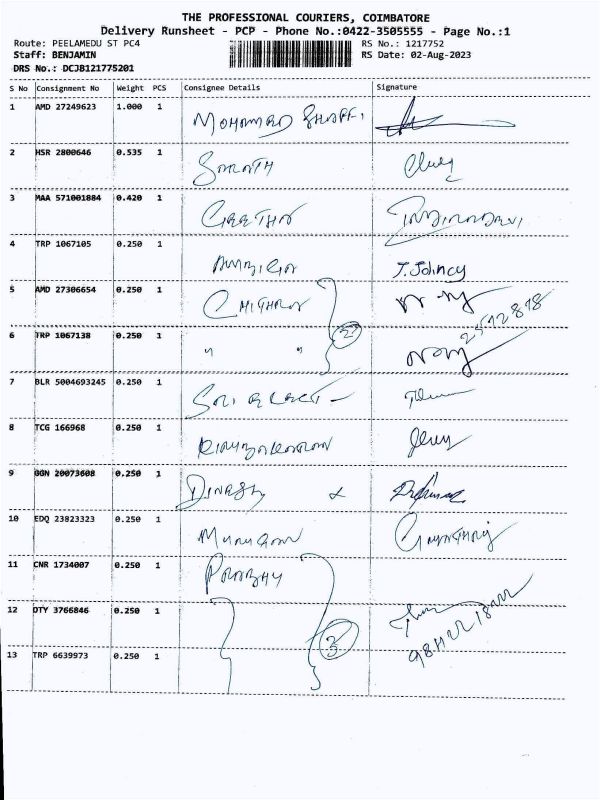 THE PROFESSIONAL COURIERS, COIMBATORE
Delivery Runsheet - PCP - Phone No.:0422-3505555 - Page No.:1
Route: PEELAMEDU ST PC4 RS No.: 1217752
Staff: BENJAMIN RS Date: 02-Aug-2023
DRS No.: DCJB121775201
S No Consignment No Weight PCS Consignee Details Signature
1 AMD 27249623 1.000 1 MOHAMED SHAFFI
2 HSR 2800646 0.535 1 SARATH
3 MAA 571001884 0.420 1 GEETHA
4 TRP 1067105 0.250 1 AMBIGA J. Joincy
5 AMD 27306654 0.250 1 CHITHRA
6 TRP 1067138 0.250 1 " " 2
7 BLR 5004693245 0.250 1
8 TCG 166968 0.250 1
9 GGN 20073608 0.250 1 DINESH &
10 EDQ 23823323 0.250 1 MURUGAN Gayathry
11 CNR 1734007 0.250 1 PRABHU
12 OTY 3766846 0.250 1 3
13 TRP 6639973 0.250 1